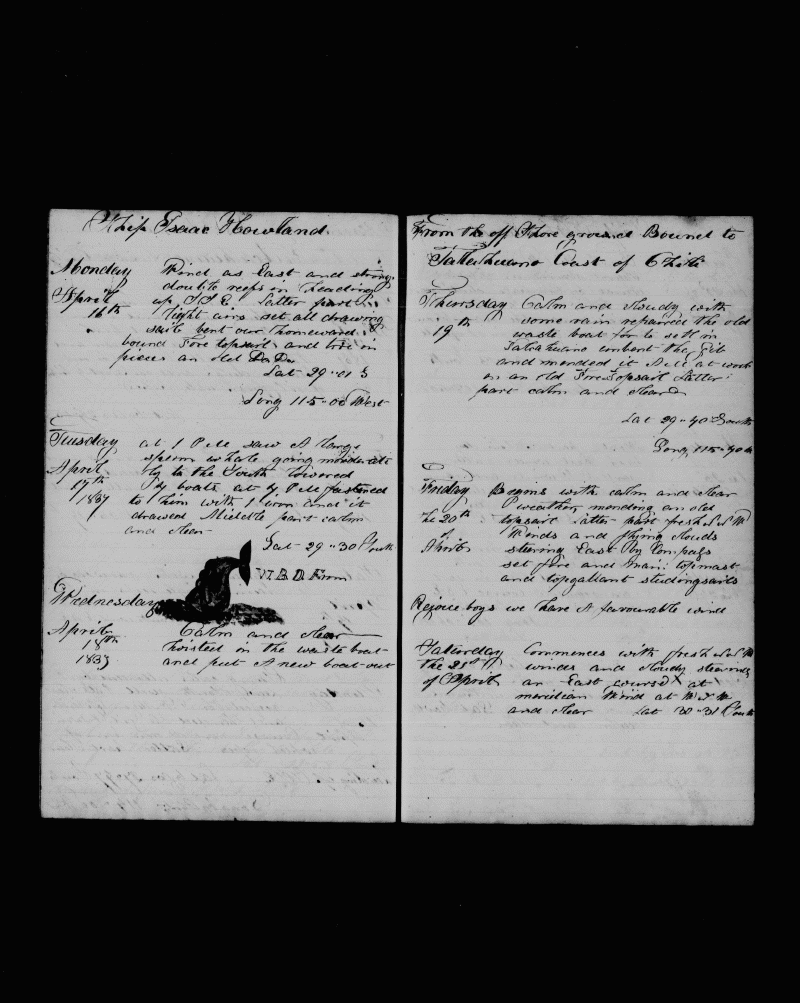 Ship Isaac Howland.
Monday Wind as East and strong
April double reefs in heading
16th up S S E. Latter part
light airs set all drawing
sail bent our homeward
bound Fore topsail and tore in
pieces an old Do Do
Lat 29"01 S
Long 115"00 West
Tuesday at 1 PM saw A large
April sperm whale going moderate
17th ly to the South lowered
1837 boats at PM fastened
to him with 1 iron and it
drawed Middle part calm
and clear
Lat 29"30 South
From
Wednesday
April Calm and clear
18th hoisted in the waste boat
1837 and put A new boat out
From the off Shore ground Bound to
Talcahuano Coast of Chili
Thursday Calm and cloudy with
19th some rain repaired the old
waste boat for to sell in
Talcahuano unbent the Gib
and mended it still at work
on an old Fore Topsail Latter
part calm and clear
Lat 29"40 South
Long 115"40
Friday Begins with calm and clear
the 20th weather, mending an old
of topsail latter part fresh
April Winds and flying clouds
steering East By Compass
set fore and main topmast
and topgallant studingsails
Rejoice boys we have A favourable wind
Saturday Commences with fresh
the 21st winds and cloudy steering
of April an East course at
meridian Wind at
and clear Lat 30"31 South